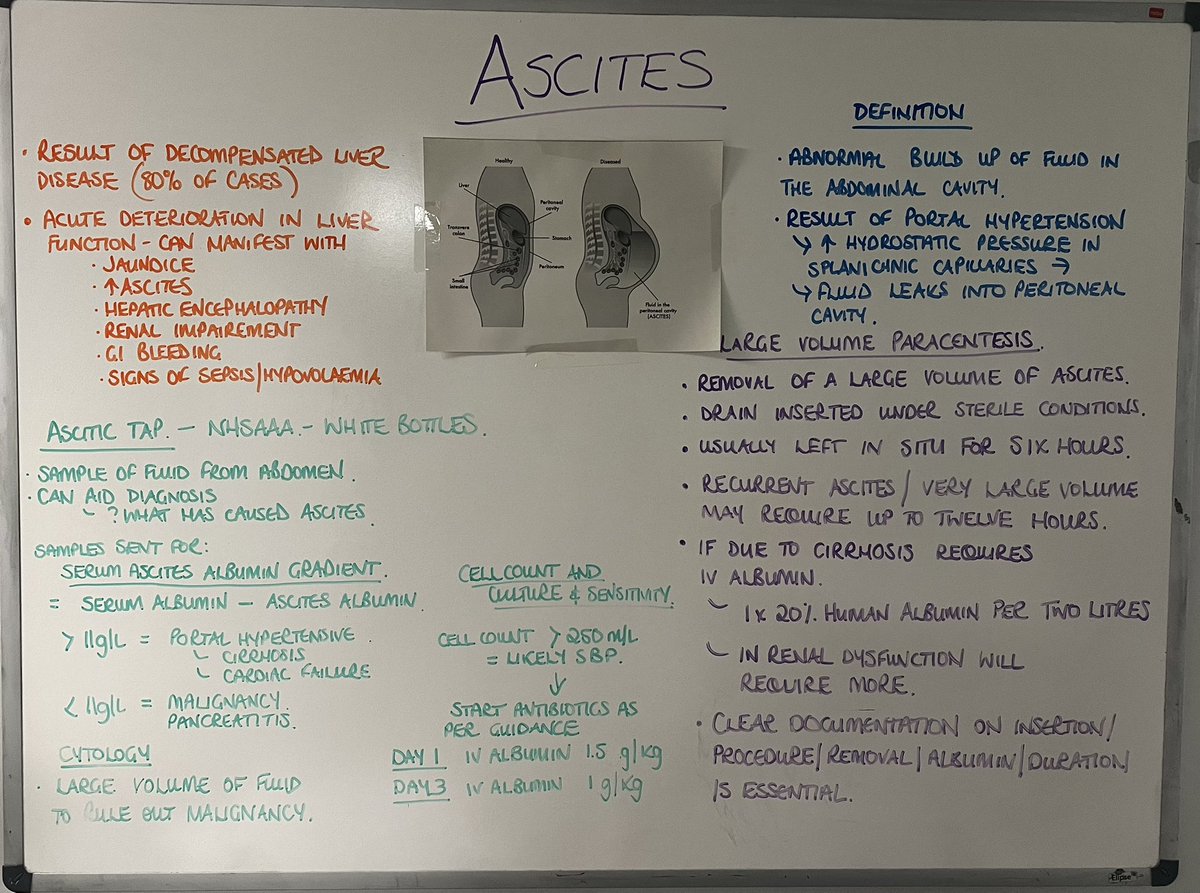 ASCITES
· RESULT OF DECOMPENSATED LIVER
DISEASE (80% OF CASES)
· ACUTE DETERIORATION IN LIVER
FUNCTION - CAN MANIFEST WITH
· JAUNDICE
· ↑ ASCITES
· HEPATIC ENCEPHALOPATHY
· RENAL IMPAIREMENT
· G.I BLEEDING
· SIGNS OF SEPSIS/HYPOVOLAEMIA
Healthy
Diseased
Liver
Peritoneal
cavity
Transverse
colon
Stomach
Peritoneum
Small
intestine
Fluid in the
peritoneal cavity
(ASCITES)
DEFINITION
· ABNORMAL BUILD UP OF FLUID IN
THE ABDOMINAL CAVITY.
· RESULT OF PORTAL HYPERTENSION
↳ ↑ HYDROSTATIC PRESSURE IN
SPLANICHNIC CAPILLARIES →
↳ FLUID LEAKS INTO PERITONEAL
CAVITY.
ASCITIC TAP. - NHSAAA. - WHITE BOTTLES.
· SAMPLE OF FLUID FROM ABDOMEN.
· CAN AID DIAGNOSIS
- ? WHAT HAS CAUSED ASCITES.
SAMPLES SENT FOR:
SERUM ASCITES ALBUMIN GRADIENT.
= SERUM ALBUMIN - ASCITES ALBUMIN.
> 11g/L = PORTAL HYPERTENSIVE.
- CIRRHOSIS
- CARDIAC FAILURE
< 11g/L = MALIGNANCY.
PANCREATITIS.
CYTOLOGY
· LARGE VOLUME OF FLUID
TO RULE OUT MALIGNANCY.
CELL COUNT AND
CULTURE & SENSITIVITY.
CELL COUNT > 250 m/L
= LIKELY SBP.
↓
START ANTIBIOTICS AS
PER GUIDANCE
DAY 1 IV ALBUMIN 1.5 g/kg
DAY 3 IV ALBUMIN 1 g/kg
LARGE VOLUME PARACENTESIS.
· REMOVAL OF A LARGE VOLUME OF ASCITES.
· DRAIN INSERTED UNDER STERILE CONDITIONS.
· USUALLY LEFT IN SITU FOR SIX HOURS.
· RECURRENT ASCITES / VERY LARGE VOLUME
MAY REQUIRE UP TO TWELVE HOURS.
· IF DUE TO CIRRHOSIS REQUIRES
IV ALBUMIN.
- 1 x 20% HUMAN ALBUMIN PER TWO LITRES
- IN RENAL DYSFUNCTION WILL
REQUIRE MORE.
· CLEAR DOCUMENTATION ON INSERTION/
PROCEDURE/REMOVAL/ALBUMIN/DURATION
IS ESSENTIAL.
Elipse